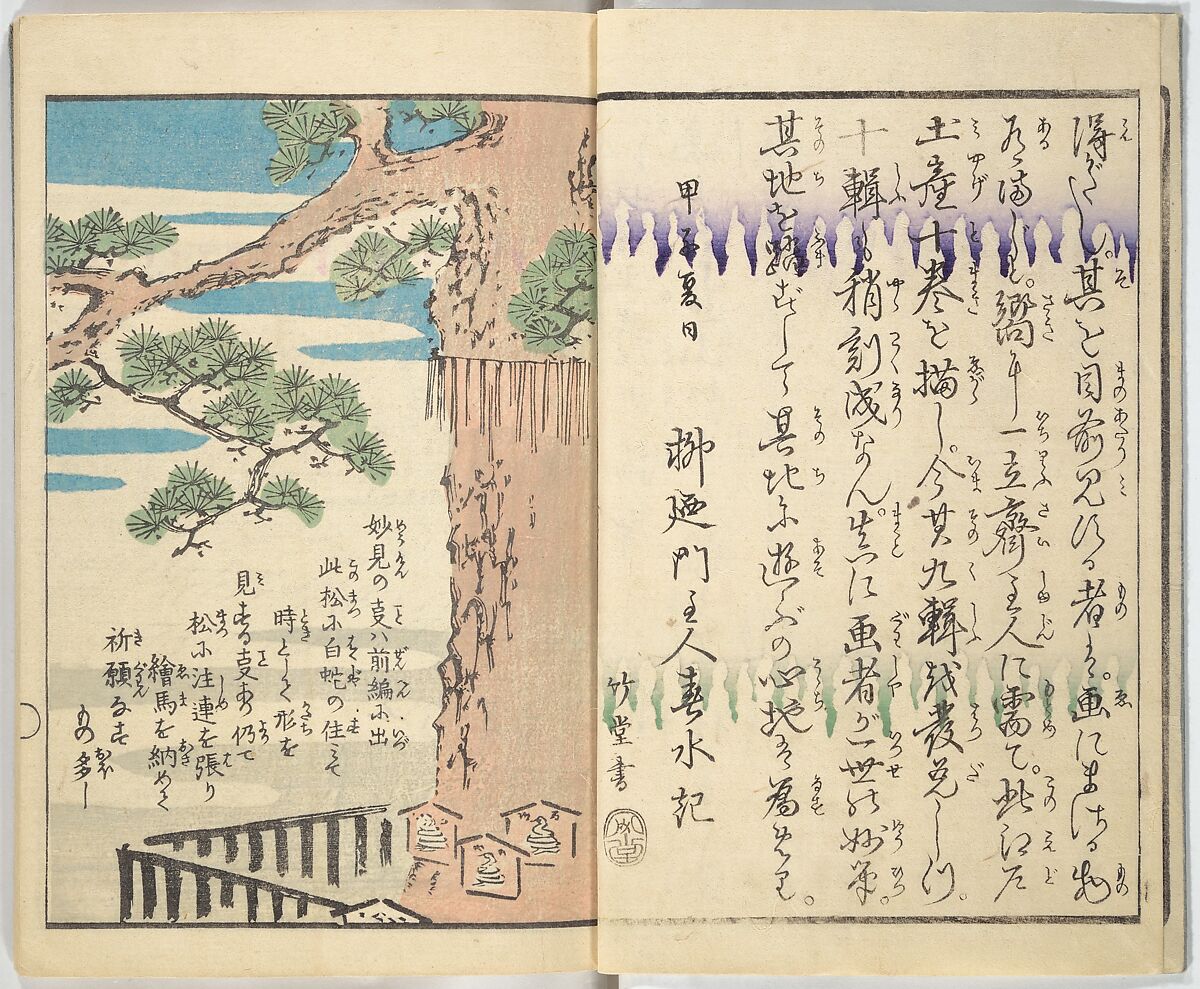 得がたし。其を目前見する者は。画にまさる物
あるまじと。嚮に一立齋主人に需て。此江戸
土産十巻を描し。今其九輯を發兌しつ。
十輯も稍刻成なん。実に画者が一世の妙筆。
其地を踏ずして其地に遊ぶの心地を為せり。
甲子夏日
柳廼門主人春水記
竹堂書
妙見の事ハ前編に出
此松に白蛇の住て
時として形を
見する事あり仍て
松に注連を張り
繪馬を納めて
祈願なす
もの多し